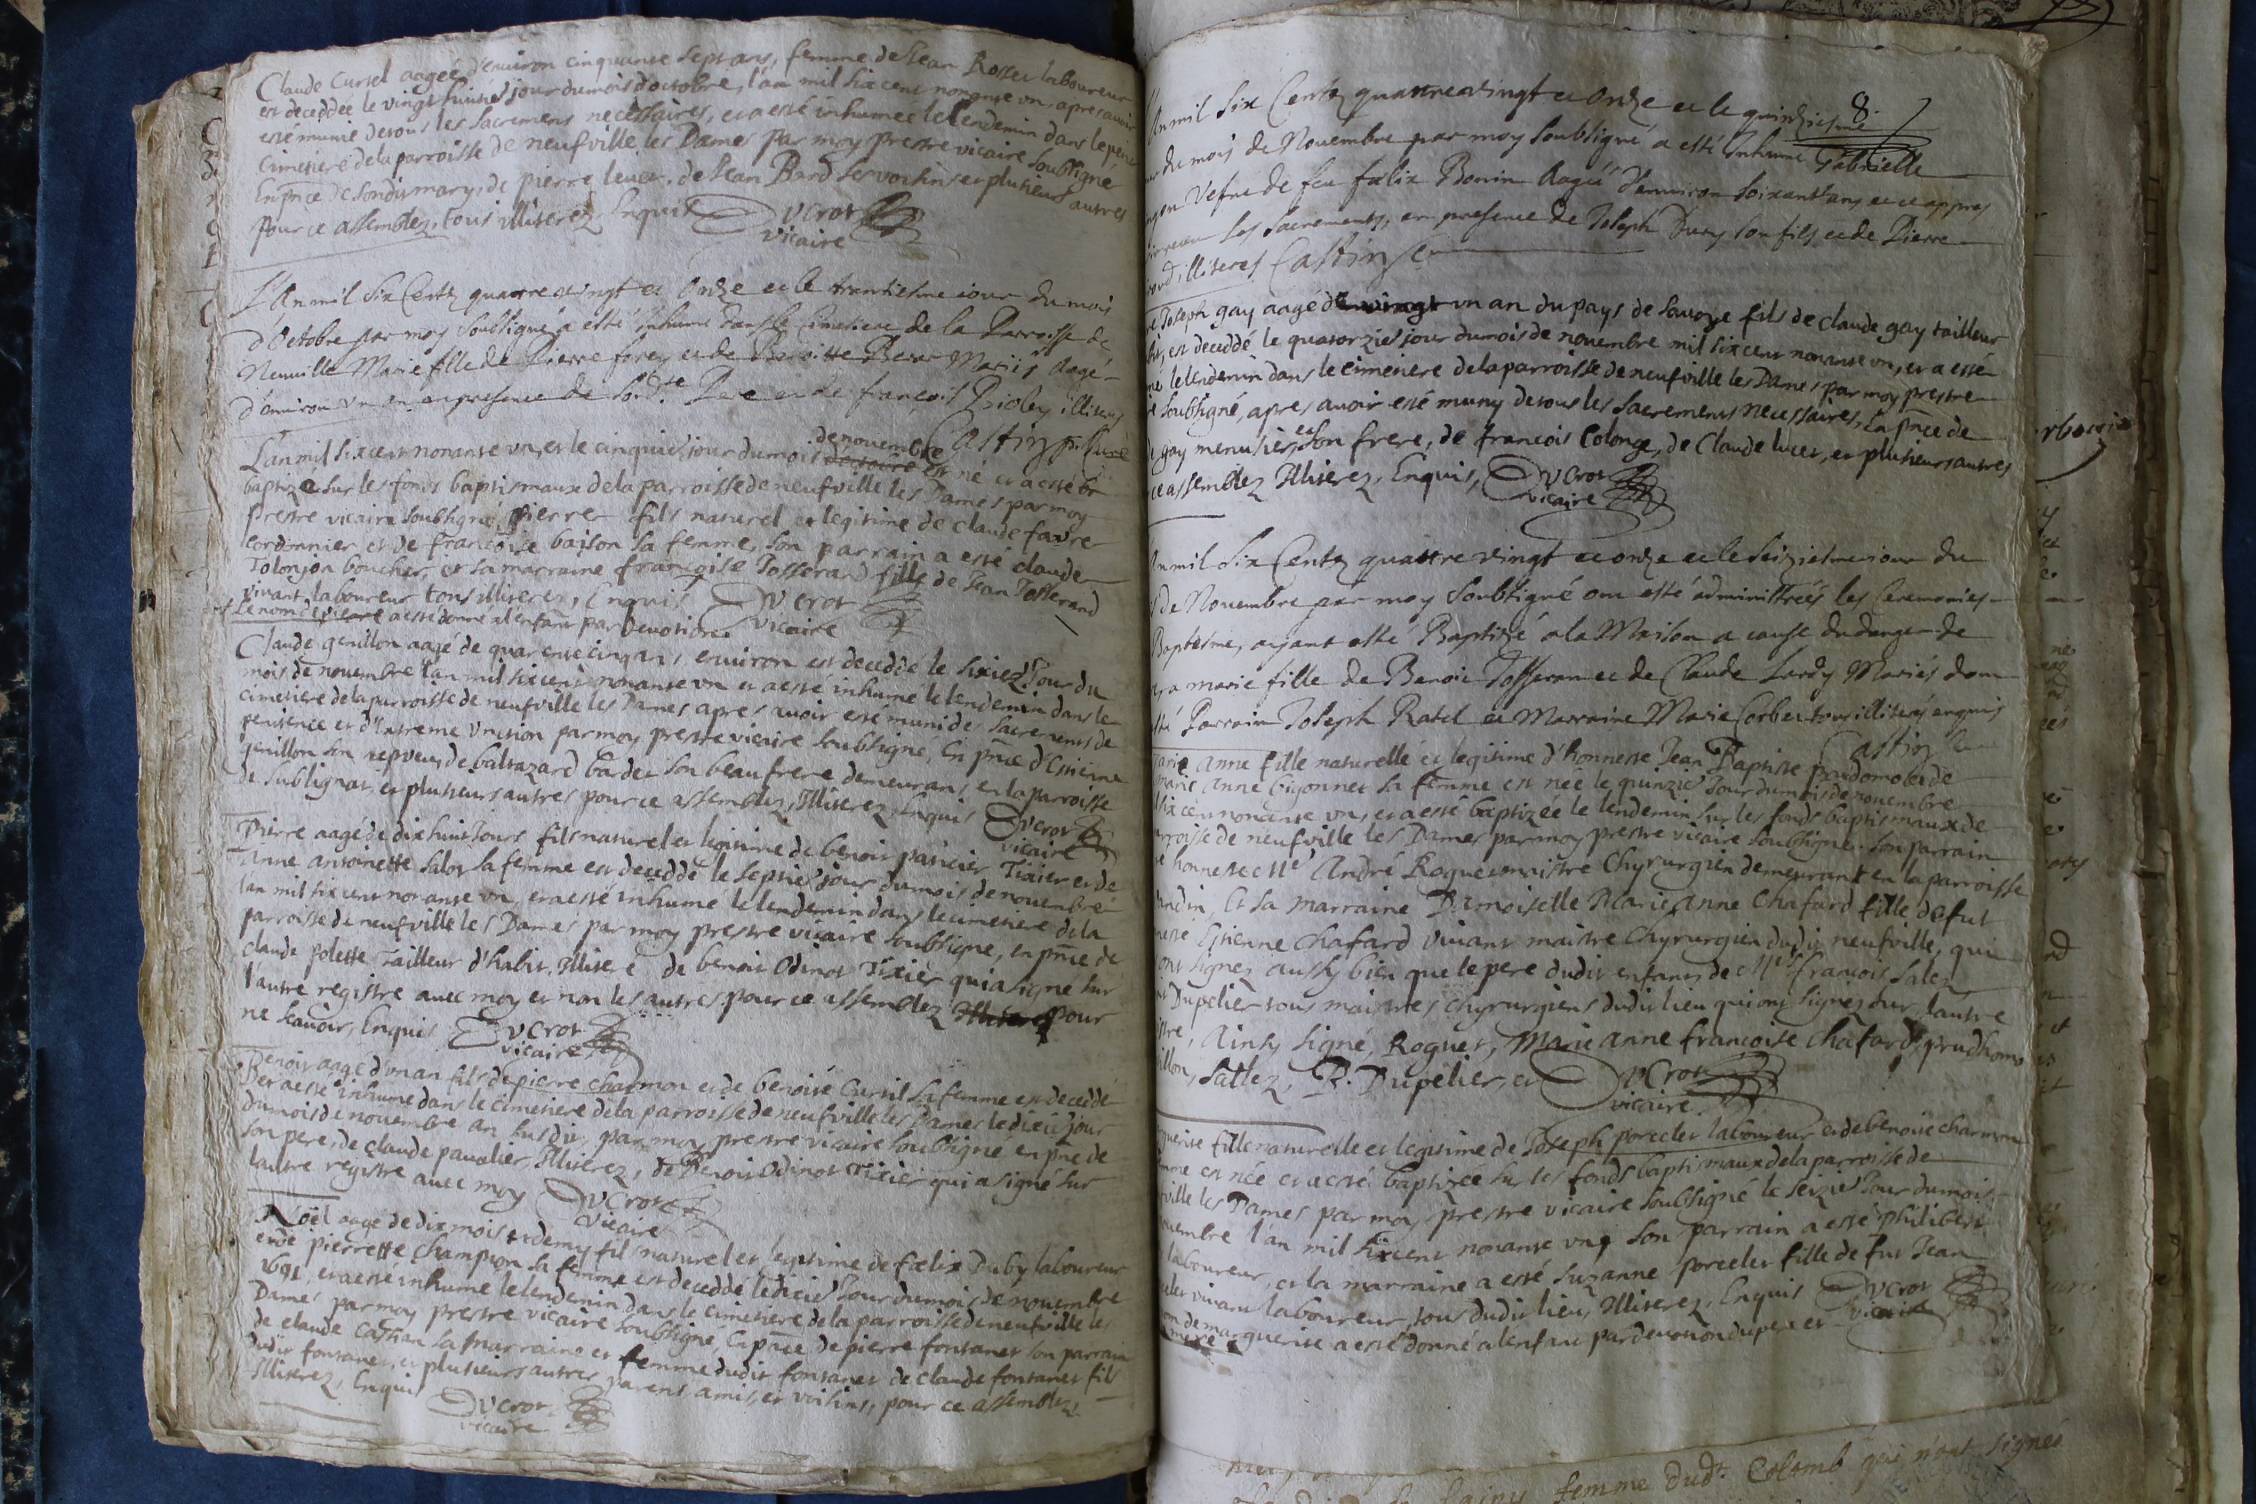 Claude Cursel aageé d'environ cinquante sept ans, femme de Jean Rosset laboureur
est deceddée le vingt huitie jour du mois d'octobre, l'an mil six cent nonante vn, apres avoir
esté munie de tous les sacremens necessaires, et a esté inhumee le lendemin dans le
cimetiere de la parroisse de neufville les Dames par moy prestre vicaire soubsigné
En pnce de sondit mary, de pierre leuer, de Jean Bard ses voisins et plusieurs autres
pour ce assemblez, tous illiterez Enquis Ducrot
vicaire
L'An mil Six Centz quattre vingt et Onze et le trantiesme iour du mois
d'Octobre par moy Soubsigné a esté Inhume dans le Cimetiere de la Parroisse de
Neuville Marie fille de Pierre forey et de Benoitte Mariés Aagé
d'environ vn an en presence de Sond.t Pere et de francois illiteres
Castin
L'an mil six cent nonante vn, et le cinquie jour du mois de nouembre est né et a esté
baptizé sur les fonds baptismaux de la parroisse de neufville les Dames par moy
prestre vicaire soubsigné, pierre fils naturel et legitime de claude favre
cordonnier et de francoise baison sa femme, son parrain a esté claude
Tolonjon boucher, et sa marraine francoise Tosserand fille de Jean Tosserand
vivant laboureur tous illiterez, Enquis Ducrot
Le nom de pierre a esté donné a l'enfant par devotion vicaire
Claude genillon aagé de quarente cinq ans, environ est deceddé le sixie Jour du
mois de nouembre l'an mil six cent nonante vn et a esté inhumé le lendemin dans le
cimetiere de la parroisse de neufville les Dames apres auoir esté muni des Sacremens de
penitence et d'Extreme Vnction par moy prestre vicaire soubsigné, En pnce d'Estienne
genillon son nepveu, de baltazard bardet son beau frere demeurans en la parroisse
de sublignat, et plusieurs autres pour ce assemblez, Illiterez, Enquis Ducrot
vicaire
Pierre aagé de dix huit Jours fils naturel et legitime de benoit paticier Tixier et de
anne antoinette salot sa femme est deceddé le septie jour du mois de nouembre
l'an mil six cent nonante vn, et a esté inhumé le lendemin dans le cimetiere de la
parroisse de neufville les Dames par moy prestre vicaire soubsigné, en pnce de
claude polette Tailleur d'habit, Illiteré de benoit Odinot Tixier qui a signé sur
l'autre registre auec moy et non les autres pour ce assemblez pour
ne scauoir, Enquis Ducrot
vicaire
Benoit aagé d'vn an fils de pierre charmon et de benoite Cursil sa femme est deceddé
et a esté inhume dans le cimetiere de la parroisse de neufville les Dames le dixie jour
du mois de nouembre an susdit, par moy prestre vicaire soubsigné en pnce de
son pere, de claude Illiterez, de Benoit Odinot Tixier qui a signé sur
lautre registre auec moy Ducrot
vicaire
Noël aagé de dix mois et demy fil naturel et legitime de foelix Duby laboureur
et de pierrette champion sa femme est deceddé le dixie Jour du mois de nouembre
1691, et a esté inhumé le lendemin dans le cimetiere de la parroisse de neufville les
Dames par moy prestre vicaire soubsigné, En pnce de pierre fontanet son parrain
de claude sa marraine et femme dudit fontanet de claude fontanet fils
dudit fontanet, et plusieurs autres parens amis, et voisins, pour ce assemblez,
Illiterez, Enquis Ducrot
vicaire
8.
An mil Six Centz quattre vingt et Onze et le quinziesme
du mois de Novembre par moy Soubsigné a esté Inhumé Gabrielle
Vefue de feu foelix Bonin Aagéé d'environ Soixant ans et ce appres
les Sacrements, en presence de Joseph Dury Son fils et de Pierre
illiteres Castin
Joseph gay aagé de vingt vn an du pays de Sauoye fils de claude gay tailleur
est deceddé le quatorzie jour du mois de nouembre mil six cent nonante vn, et a esté
le lendemin dans le cimetiere de la parroisse de neufville les Dames par moy prestre
soubsigné, apres auoir esté muny de tous les sacremens necessaires, En pnce de
gay menusier, et son frere, de francois Colonge, de Claude lucet, et plusieurs autres
ce assemblez Illiterez, Enquis, Ducrot
vicaire
An mil Six Centz quattre vingt et onze et le Seiziesme iour du
de Novembre par moy Soubsigné ont esté administrées les Ceremonies
Baptesme, ayant esté Baptizé a la Maison a cause du danger de
marie fille de Benoit Tosseran et de Claude Lardy Mariés dont
esté Parrain Joseph Ratel et Marraine Marie Corbet tous illiterés enquis
Castin
Marie anne fille naturelle et legitime d'honneste Jean Baptiste prudomo et de
marie anne gigonnet sa femme est née le quinzie Jour du mois de nouembre
six cent nonante vn, et a esté baptizée le lendemin sur les fonds baptismaux de
parroisse de neufville les Dames par moy prestre vicaire soubsigné. son parrain
honneste Mre André Roguet maistre Chyrurgien demeurant en la parroisse
Et sa marraine Damoiselle Marie Anne Chafard fille de fut
Estienne Chafard vivant maistre Chyrurgien dudit neufville, qui
ont signez aussy bien que le pere dudit enfant, de Mre francois Salez
Dupelier tous maistres chyrurgiens dudit lieu qui ont signez sur lautre
Ainsy signé, Roguet, Marie anne francoise Chafard, prudhomo
Sallez, B. Dupelier, et Ducrot
vicaire
fille naturelle et legitime de Joseph porcelet laboureur et de benoite charmon
femme est née et a esté baptizée sur les fonds baptismaux de la parroisse de
les Dames par moy prestre vicaire soubsigné le seizie Jour du mois
l'an mil sixcent nonante vn, son parrain a esté philibert
laboureur, et la marraine a esté Suzanne porcelet fille de fut Jean
vivant laboureur, tous dudit lieu, Illiterez, Enquis Ducrot
de marguerite a esté donné a lenfant par deuotion du pere et vicaire
mere
femme dud.t Colomb qui n'ont signés